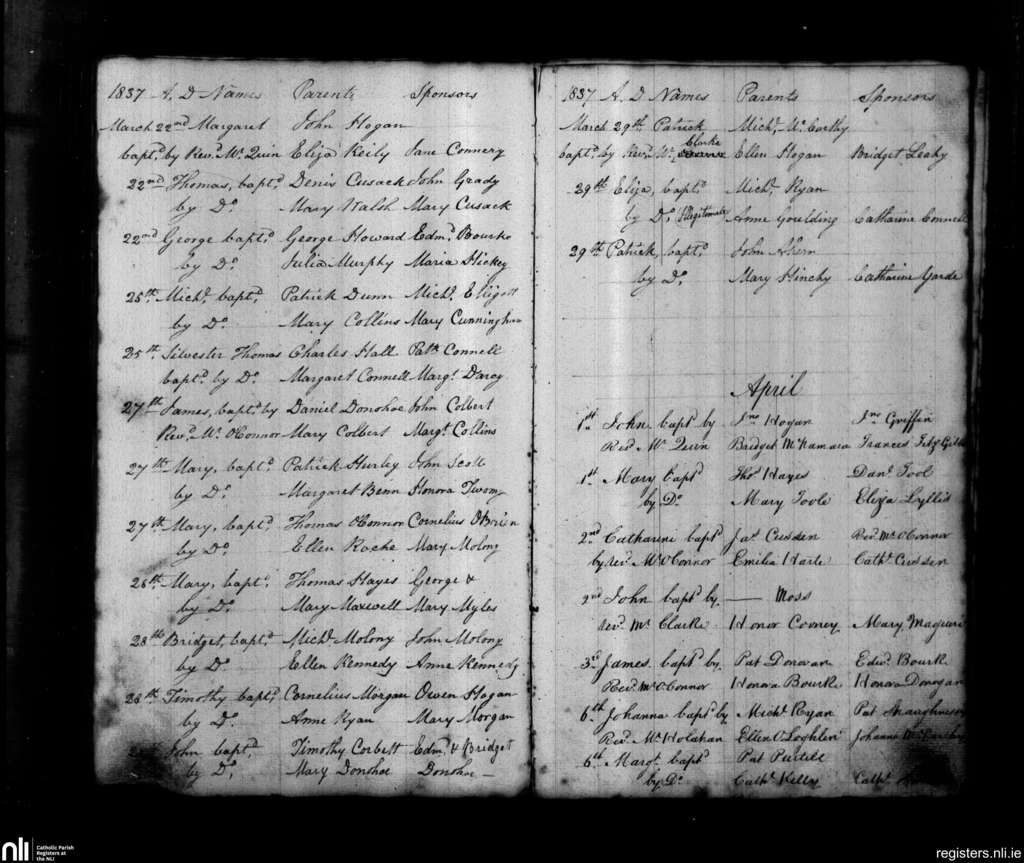 1837 A. D Names Parents Sponsors
March 22nd Margaret John Hogan
bapt.d by Revd. Mr. Quin Eliza Keily Jane Connery
22nd Thomas, bapt.d Denis Cusack John Grady
by Do. Mary Walsh Mary Cusack
22nd George bapt.d George Howard Edmd. Bourke
by Do. Julia Murphy Maria Hickey
25th. Michl. bapt.d Patrick Dunn Michl. Elligott
by Do. Mary Collins Mary Cunningham
25th. Silvester Thomas Charles Hall Patk. Connell
bapt.d by Do. Margaret Connell Margt. Darcy
27th James, bapt.d by Daniel Donohoe John Colbert
Revd. Mr. OConnor Mary Colbert Margt. Collins
27th Mary, bapt.d Patrick Hurley John Scott
by Do. Margaret Benn Honora
27th. Mary, bapt.d Thomas OConnor Cornelius OBrien
by Do. Ellen Roche Mary Molony
28th. Mary, bapt.d Thomas Hayes George &
by Do. Mary Maxwell Mary Myles
28th Bridget, bapt.d Michl. Molony John Molony
by Do. Ellen Kennedy Anne Kennedy
28th. Timothy bapt.d Cornelius Morgan Owen Hogan
by Do. Anne Ryan Mary Morgan
John bapt.d Timothy Corbett Edmd. & Bridget
by Do. Mary Donohoe Donohoe
1837 A. D Names Parents Sponsors
March 29th. Patrick Michl. McCarthy
Clarke
bapt.d by Revd. Mr. Ellen Hogan Bridget Leahy
29th Eliza, bapt.d Michl. Ryan
by Do. Illegitimate Anne Goulding Catharine Connell
29th Patrick, bapt.d John Ahern
by Do. Mary Hinchy Catharine Garde
April
1st. John bapd. by Jno Hogan Jno Griffin
Revd. Mr. Quin Bridget McNamara Frances
1st. Mary bapd. Thos. Hayes Danl. Tool
by Do. Mary Toole Eliza
2nd Catharine bapd. Jas. Cussen Revd. Mr. OConnor
by revd. Mr. OConnor Emilia Harte Cathe. Cussen
2nd John bapd. by —— Moss
revd. Mr. Clarke Honor Cooney Mary Maguire
3rd James bapd. by Pat Donovan Edwd. Bourk
Revd. Mr. OConnor Honora Bourke Honora Donogan
6th Johanna bapd. by Michl. Ryan Pat Shaughnessy
Revd. Mr. Holahan Ellen O'Loghlen Johanna McCarthy
6th Margt. bapd. Pat Purtill
by Do. Cathe. Kelly Cathe.
nli Catholic Parish
Registers at
the NLI
registers.nli.ie